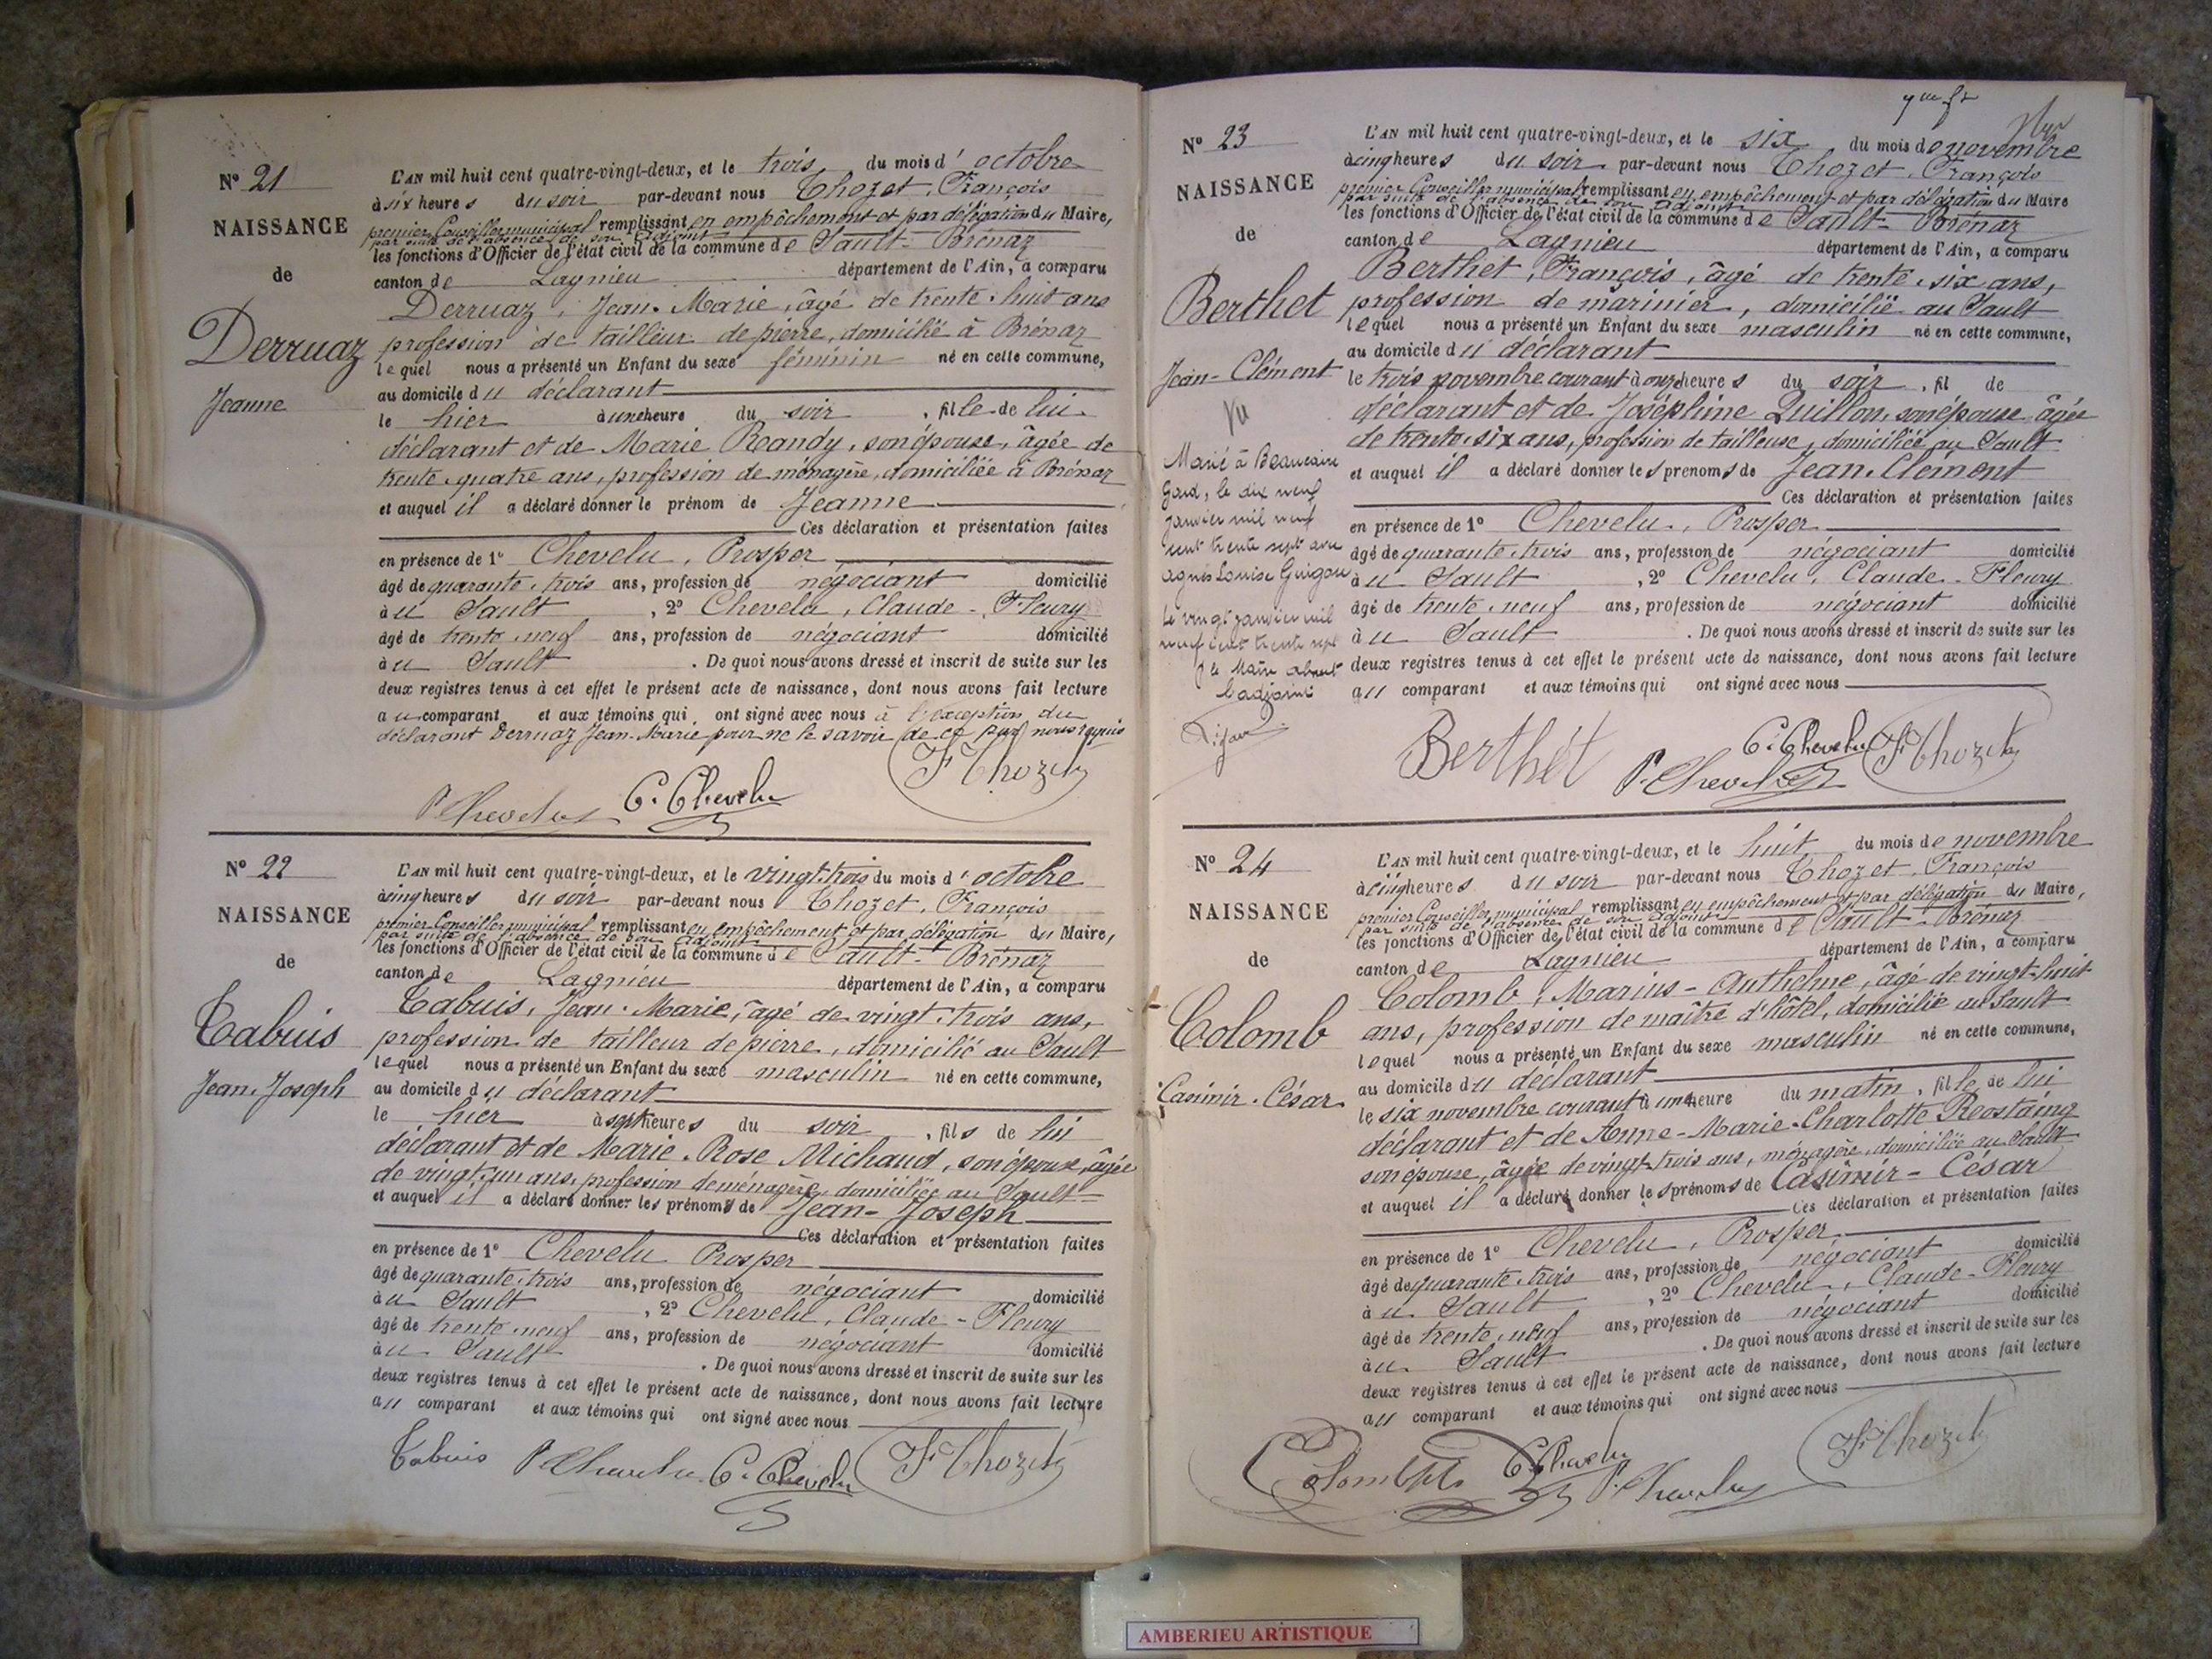 N° 21
NAISSANCE
de
Derruaz
Jeanne
L'AN mil huit cent quatre-vingt-deux, et le trois du mois d'octobre
à six heures du soir par-devant nous Thozet, François
premier Conseiller municipal remplissant en empêchement et par délégation du Maire,
par suite de l'absence de son Adjoint
les fonctions d'Officier de l'état civil de la commune de Sault-Brénaz
canton de Lagnieu département de l'Ain, a comparu
Derruaz, Jean-Marie, âgé de trente-huit ans
profession de tailleur de pierre, domicilié à Brénaz
lequel nous a présenté un Enfant du sexe féminin né en cette commune,
au domicile du déclarant
le hier à une heure du soir, fille de lui
déclarant et de Marie Randy, son épouse, âgée de
trente-quatre ans, profession de ménagère, domiciliée à Brénaz
et auquel il a déclaré donner le prénom de Jeanne
Ces déclaration et présentation faites
en présence de 1° Chevelu, Prosper
âgé de quarante-trois ans, profession de négociant domicilié
à u Sault, 2° Chevelu, Claude-Fleury
âgé de trente-neuf ans, profession de négociant domicilié
à u Sault. De quoi nous avons dressé et inscrit de suite sur les
deux registres tenus à cet effet le présent acte de naissance, dont nous avons fait lecture
au comparant et aux témoins qui ont signé avec nous à l'exception du
déclarant Derruaz Jean-Marie pour ne le savoir de ce par nous requis
P. Chevelu C. Chevelu F Thozet
N° 22
NAISSANCE
de
Tabuis
Jean-Joseph
L'AN mil huit cent quatre-vingt-deux, et le vingt-trois du mois d'octobre
à cinq heures du soir par-devant nous Thozet, François
premier Conseiller municipal remplissant en empêchement et par délégation du Maire,
par suite de l'absence de son Adjoint
les fonctions d'Officier de l'état civil de la commune de Sault-Brénaz
canton de Lagnieu département de l'Ain, a comparu
Tabuis, Jean-Marie, âgé de vingt-trois ans,
profession de tailleur de pierre, domicilié au Sault
lequel nous a présenté un Enfant du sexe masculin né en cette commune,
au domicile du déclarant
le hier à sept heures du soir, fils de lui
déclarant et de Marie-Rose Michaud, son épouse, âgée
de vingt-un ans, profession de ménagère, domiciliée au Sault
et auquel il a déclaré donner les prénoms de Jean-Joseph
Ces déclaration et présentation faites
en présence de 1° Chevelu Prosper
âgé de quarante-trois ans, profession de négociant domicilié
à u Sault, 2° Chevelu, Claude-Fleury
âgé de trente-neuf ans, profession de négociant domicilié
à u Sault. De quoi nous avons dressé et inscrit de suite sur les
deux registres tenus à cet effet le présent acte de naissance, dont nous avons fait lecture
au comparant et aux témoins qui ont signé avec nous
Tabuis P. Chevelu C. Chevelu F Thozet
N° 23
NAISSANCE
de
Berthet
Jean-Clément
Vu
Marié à Beaucaire
Gard, le dix neuf
janvier mil neuf
cent trente sept avec
Agnès Louise Guigou
Le vingt janvier mil
neuf cent trente sept
P le Maire absent
l'adjoint
L'AN mil huit cent quatre-vingt-deux, et le six du mois de novembre
à cinq heures du soir par-devant nous Thozet, François
premier Conseiller municipal remplissant en empêchement et par délégation du Maire
par suite de l'absence de son Adjoint
les fonctions d'Officier de l'état civil de la commune de Sault-Brénaz
canton de Lagnieu département de l'Ain, a comparu
Berthet, François, âgé de trente-six ans,
profession de marinier, domicilié au Sault
lequel nous a présenté un Enfant du sexe masculin né en cette commune,
au domicile du déclarant
le trois novembre courant à onze heures du soir, fil de
déclarant et de Joséphine Quillon, son épouse âgée
de trente-six ans, profession de tailleuse, domiciliée au Sault
et auquel il a déclaré donner les prénoms de Jean-Clément
Ces déclaration et présentation faites
en présence de 1° Chevelu, Prosper
âgé de quarante-trois ans, profession de négociant domicilié
à u Sault, 2° Chevelu, Claude-Fleury
âgé de trente-neuf ans, profession de négociant domicilié
à u Sault. De quoi nous avons dressé et inscrit de suite sur les
deux registres tenus à cet effet le présent acte de naissance, dont nous avons fait lecture
au comparant et aux témoins qui ont signé avec nous
Berthet P. Chevelu C. Chevelu F Thozet
N° 24
NAISSANCE
de
Colomb
Casimir-César
L'AN mil huit cent quatre-vingt-deux, et le huit du mois de novembre
à cinq heures du soir par-devant nous Thozet, François
premier Conseiller municipal remplissant en empêchement et par délégation du Maire,
par suite de l'absence de son Adjoint
les fonctions d'Officier de l'état civil de la commune de Sault-Brénaz
canton de Lagnieu département de l'Ain, a comparu
Colomb, Marius-Anthelme, âgé de vingt-huit
ans, profession de maître d'hôtel, domicilié au Sault
lequel nous a présenté un Enfant du sexe masculin né en cette commune,
au domicile du déclarant
le six novembre courant à une heure du matin, fille de lui
déclarant et de Anne-Marie-Charlotte Reostaing
son épouse, âgée de vingt-trois ans, ménagère, domiciliée au Sault
et auquel il a déclaré donner les prénoms de Casimir-César
Ces déclaration et présentation faites
en présence de 1° Chevelu, Prosper
âgé de quarante-trois ans, profession de négociant domicilié
à u Sault, 2° Chevelu, Claude-Fleury
âgé de trente-neuf ans, profession de négociant domicilié
à u Sault. De quoi nous avons dressé et inscrit de suite sur les
deux registres tenus à cet effet le présent acte de naissance, dont nous avons fait lecture
au comparant et aux témoins qui ont signé avec nous
Colomb C. Chevelu P. Chevelu F Thozet
AMBERIEU ARTISTIQUE